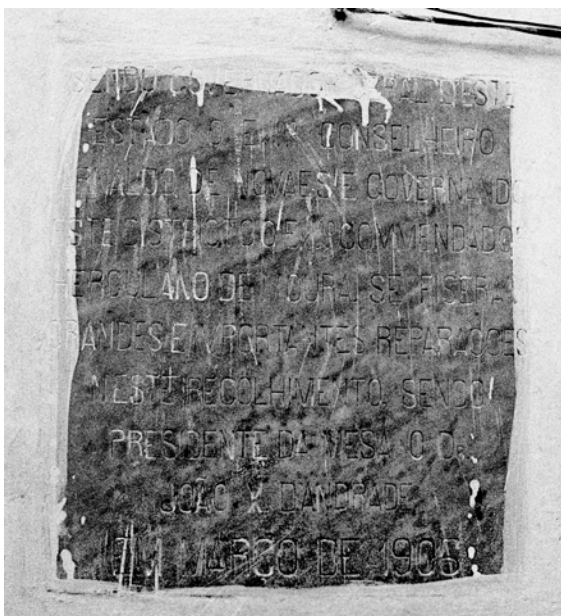 SENDO GOVERNADOR GERAL DESTE
ESTADO O EXMO CONSELHEIRO
ARNALDO DE NOVAES E GOVERNANDO
ESTE DISTRICTO O EXMO COMMENDADOR
HERCULANO DE MOURA, SE FISERAM
GRANDES E IMPORTANTES REPARAÇÕES
NESTE RECOLHIMENTO, SENDO
PRESIDENTE DA MESA O DR.
JOÃO X. D'ANDRADE
MARÇO DE 1905